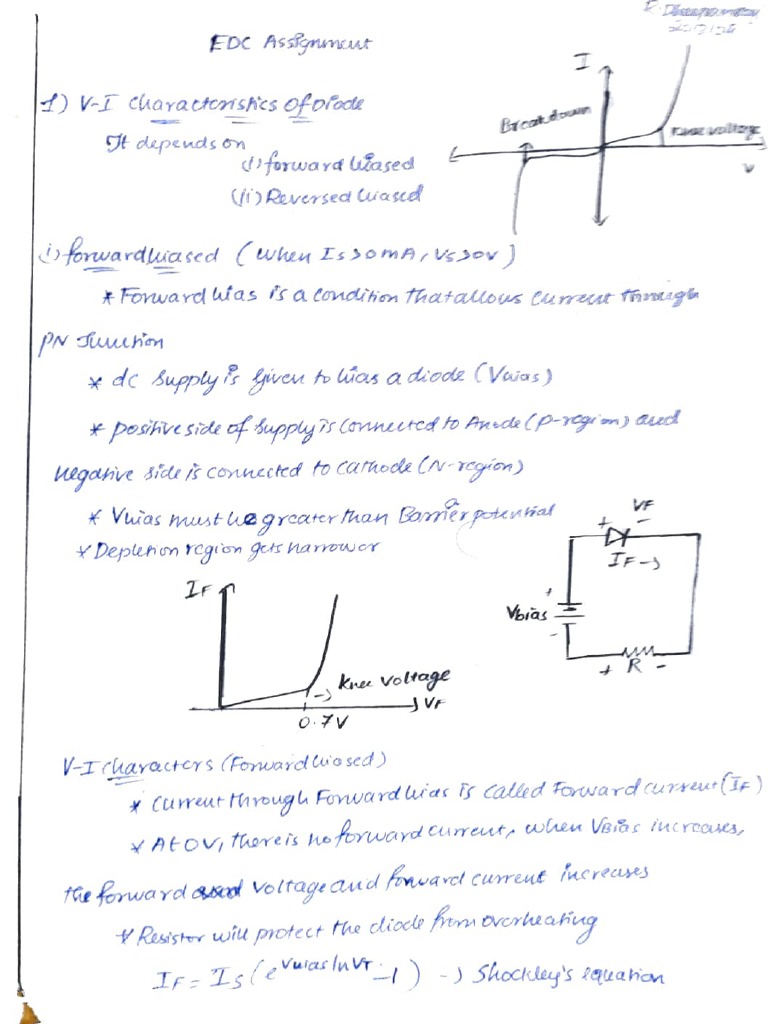 EDC Assignment
I
Breakdown
Knee voltage
V
1) V-I characteristics of Diode
It depends on
(i) forward biased
(ii) Reversed biased
i) forward biased (when Is>0mA, Vs>0V)
* Forward bias is a condition that allows current through
PN Junction
* dc supply is given to bias a diode (Vbias)
* positive side of supply is connected to Anode (p-region) and
negative side is connected to cathode (N-region)
* Vbias must be greater than Barrier potential
* Depletion region gets narrower
VF
+ -
IF ->
+
Vbias
-
+ R -
IF
-> Knee voltage
VF
0.7V
V-I characters (Forward biased)
* current through Forward bias is called Forward current (IF)
* At 0V, there is no forward current, when VBias increases,
the forward voltage and forward current increases
* Resistor will protect the diode from overheating
IF = IS (e^Vbias/nVT -1) -> Shockley's equation